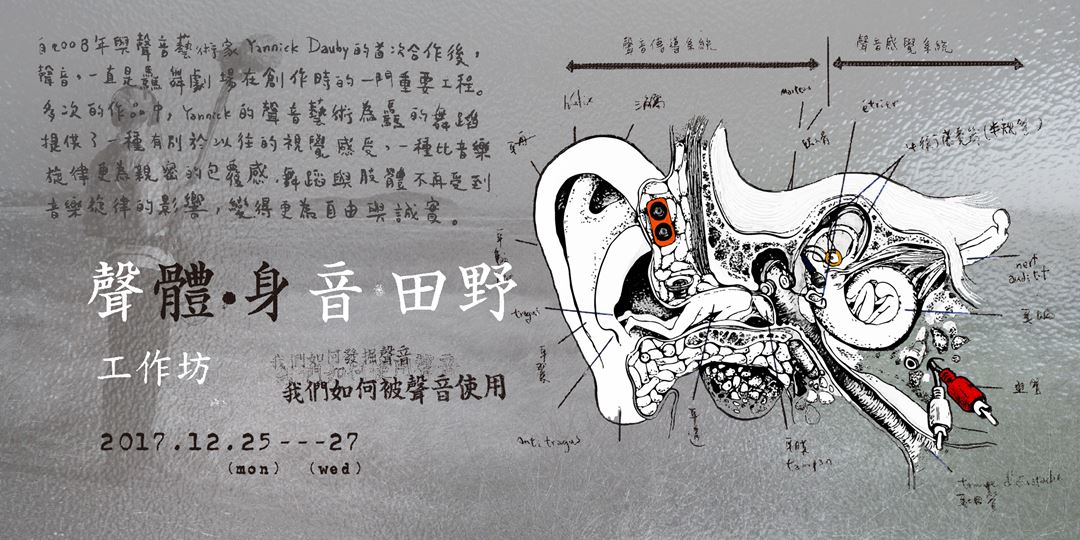 自2008年與聲音藝術家 Yannick Dauby的首次合作後,
聲音,一直是驫舞劇場在創作時的一門重要工程。
多次的作品中, Yannick的聲音藝術為驫的舞蹈
提供了一種有別於以往的視覺感受,一種比音樂
旋律更為親密的包覆感,舞蹈與肢體不再受到
音樂旋律的影響,變得更為自由與誠實。
聲體·身音·田野
工作坊
我們如何發掘聲音
我們如何被聲音使用
2017.12.25---27
(mon) (wed)
聲音傳導系統
聲音感覺系統
helix
marteau
étrier
tragus
anti tragus
nerf auditif
血管
耳膜
tampon
trompe d'Eustache